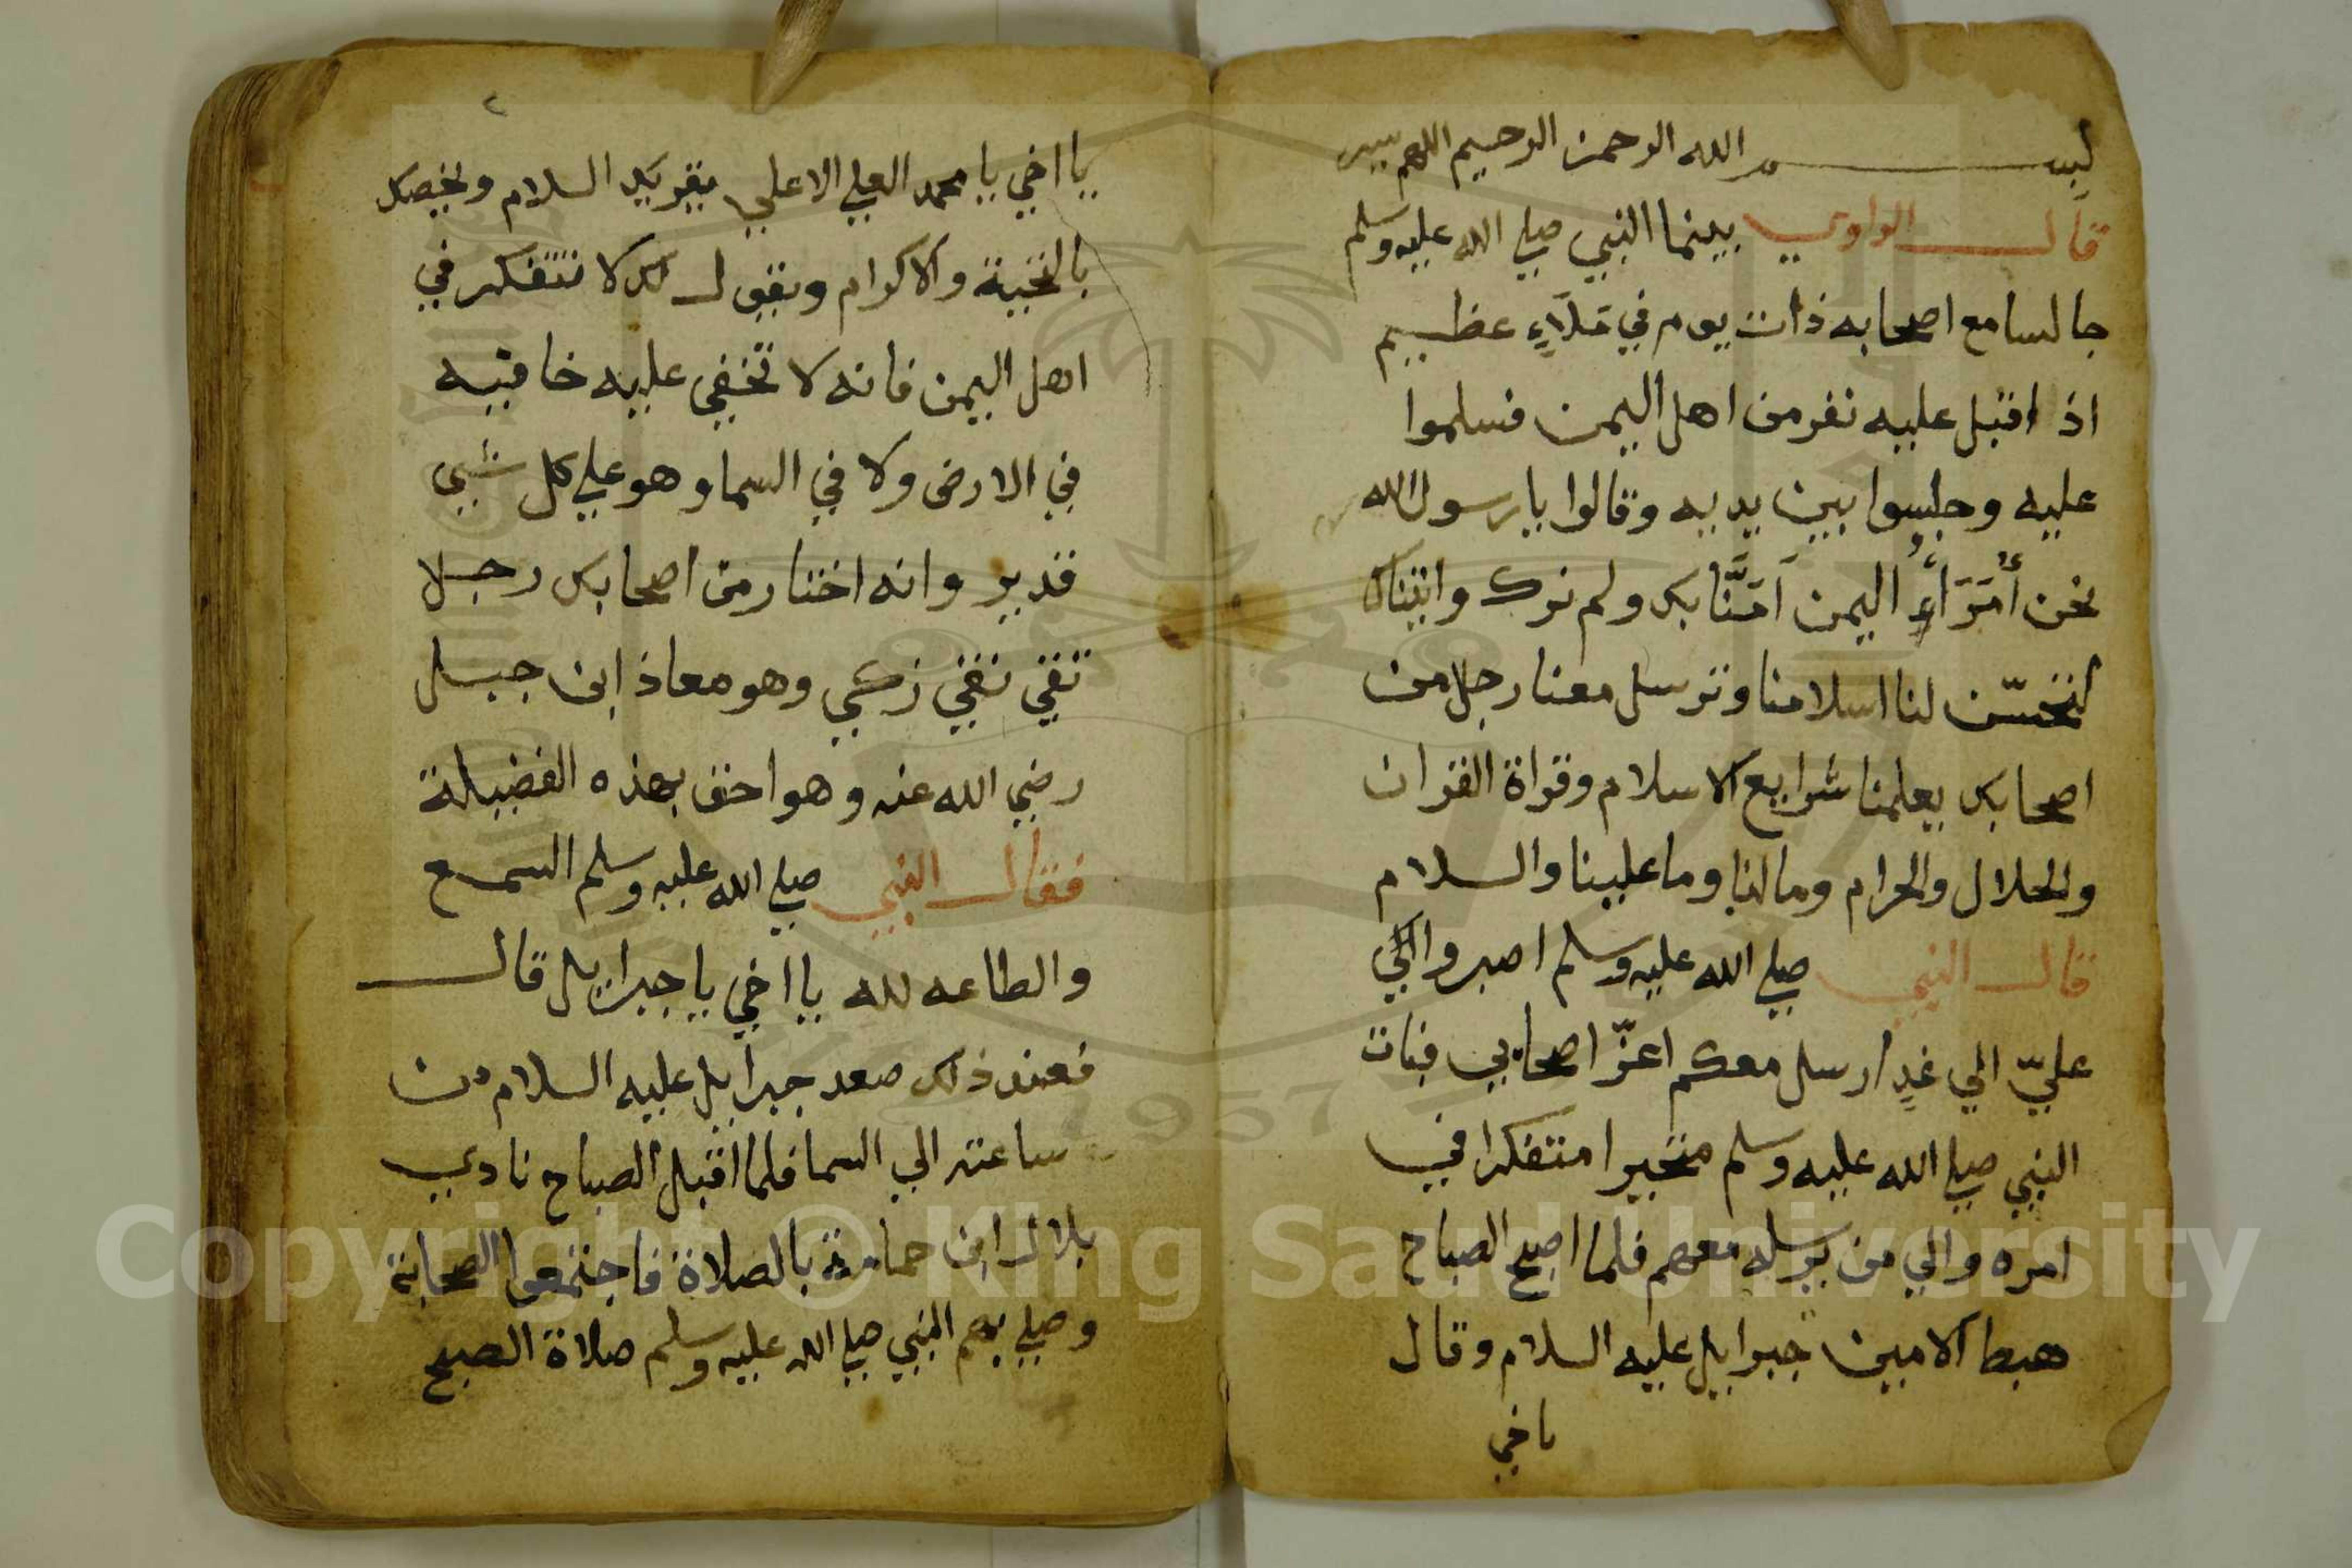 بسم الله الرحمن الرحيم اللهم يسر
قال الراوي بينما النبي صلي الله عليه وسلم
جالسا مع اصحابه ذات يوم في مَلَاءٍ عظيم
اذ اقبل عليه نفر من اهل اليمن فسلموا
عليه وجلسوا بين يديه وقالوا يا رسول الله
نحن أُمَرَاءُ اليمن آمَنَّا بك ولم نرك واتيناك
لتحسّن لنا اسلامنا وترسل معنا رجلا من
اصحابك يعلمنا شرايع الاسلام وقراة القران
والحلال والحرام وما لنا وما علينا والسلام
قال النبي صلي الله عليه وسلم اصبروا اليّ
عليّ الي غدٍ ارسل معكم اعزّ اصحابي فبات
النبي صلي الله عليه وسلم متحيرا متفكرا في
امره والي من يرسله معهم فلما اصبح الصباح
هبط الامين جبرايل عليه السلام وقال
ياخي
٢
يا اخي يا محمد العلي الاعلي يقريك السلام ويخصك
بالتحية والاكرام ويقول لك لا تتفكر في
اهل اليمن فانه لا تخفي عليه خافيه
في الارض ولا في السما وهو علي كل شيي
قدير وانه اختار من اصحابك رجلا
تقي نقي زكي وهو معاذ ابن جبل
رضي الله عنه وهو احق بهذه الفضيلة
فقال النبي صلي الله عليه وسلم السمع
والطاعه لله يا اخي يا جبرايل قال
فعند ذلك صعد جبرايل عليه السلام من
ساعته الي السما فلما اقبل الصباح نادي
بلال ابن حمامة بالصلاة فاجتمعوا الصحابة
وصلي بهم النبي صلي الله عليه وسلم صلاة الصبح
1957
Copyright © King Saud University